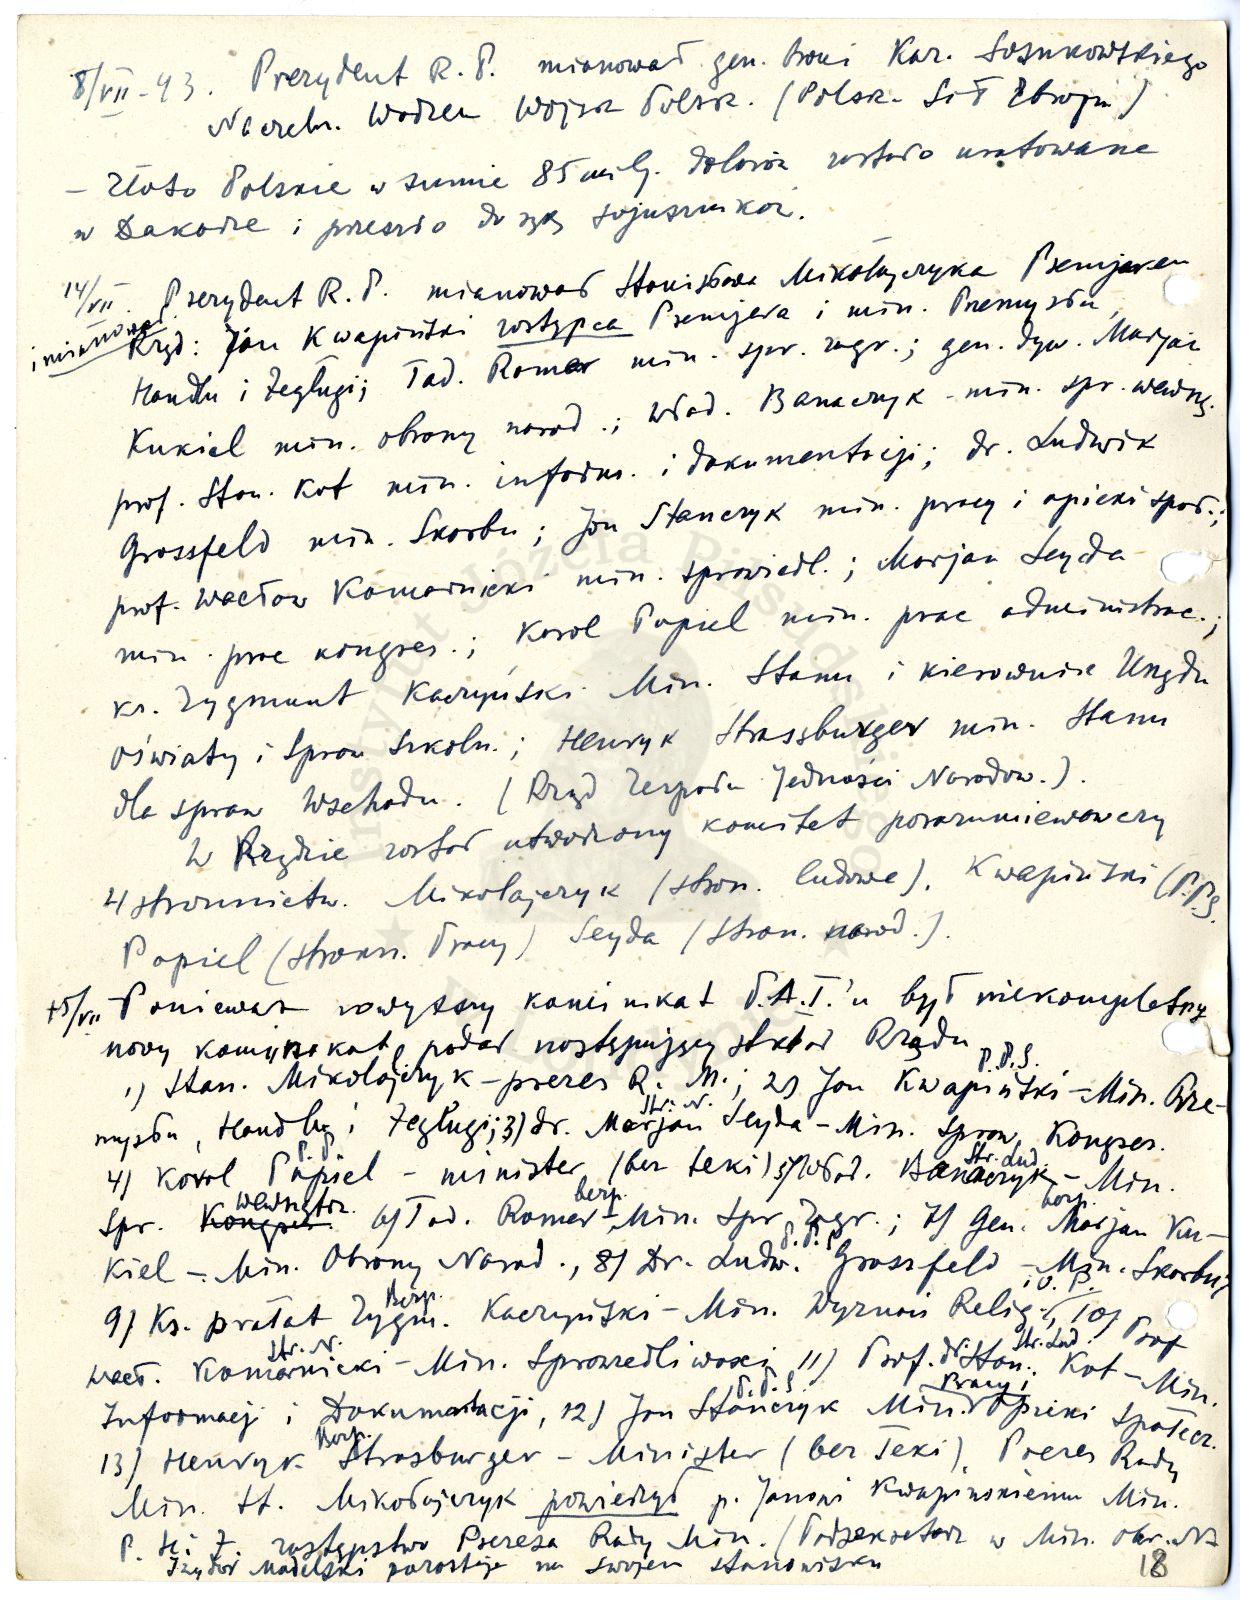 8/VII-43. Prezydent R.P. mianował gen. broni Kaz. Sosnkowskiego
Naczeln. Wodzem Wojsk Polsk. (Polsk. Sił Zbrojn)
– Złoto Polskie w sumie 85 milj. dolarów zostało uratowane
w Dakarze i przeszło do rąk sojuszników.
14/VII. Prezydent R.P. mianował Stanisława Mikołajczyka Premjerem
i mianował Rząd: Jan Kwapiński zastępca Premjera i min. Przemysłu,
Handlu i Żeglugi; Tad. Romer min. spr. zagr.; gen. dyw. Marjan
Kukiel min. obrony narod.; Wład. Banaczyk - min. spr. wewng.
prof. Stan. Kot min. inform. i dokumentacji; dr. Ludwik
Grossfeld min. Skarbu; Jan Stańczyk min. pracy i opieki społ.;
prof. Wacław Komarnicki min. sprawiedl.; Marjan Seyda
min. prac kongres.; Karol Popiel min. prac administrac.;
ks. Zygmunt Kaczyński Min. Stanu i kierownik Urzędu
Oświaty i Spraw Szkoln.; Henryk Strassburger min. Stanu
dla spraw Wschodu. (Rząd Zespołu Jedności Narodow.).
W Rządzie został utworzony komitet porozumiewawczy
4 stronnictw. Mikołajczyk (stron. ludowe), Kwapiński (P.P.S.
Popiel (stronn. Pracy) Seyda (stron. narod.).
15/VII Ponieważ powyższy komunikat P.A.T.'u był niekompletny
nowy komunikat podał następujący skład Rządu
1) Stan. Mikołajczyk – prezes R. M.; 2) Jan Kwapiński P.P.S. – Min. Prze-
mysłu, Handlu i Żeglugi; 3) dr. Marjan Seyda Str. N. – Min. Spraw. Kongres.
4) Karol Popiel P.P. – minister (bez teki) 5) Wład. Banaczyk Str. Lud – Min.
Spr. Kongres wewnętrz. 6) Tad. Romer bezp. – Min. Spr. Zagr.; 7) Gen. Marjan bezp. Ku-
kiel – Min. Obrony Narod., 8) Dr. Ludw. P.P.S. Grossfeld – Min. Skarbu;
9) Ks. prałat Zygm. Bezp. Kaczyński – Min. Wyznań Relig. i O. P., 10) Prof
Wacł. Komarnicki Str. N. – Min. Sprawiedliwości, 11) Prof. dr. Stan. Str. Lud. Kot – Min.
Informacji i Dokumentacji, 12) Jan Stańczyk P.P.S. Min. Pracy i Opieki Społecz.
13) Henryk Bezp. Strasburger – Minister (bez Teki), Prezes Rady
Min. St. Mikołajczyk powierzył p. Janowi Kwapinskiemu Min.
P. H. i Z. zastępstwo Prezesa Rady Min. (Podsekretarz w Min. Obr. N.
Izydor Modelski pozostaje na swojem stanowisku
18